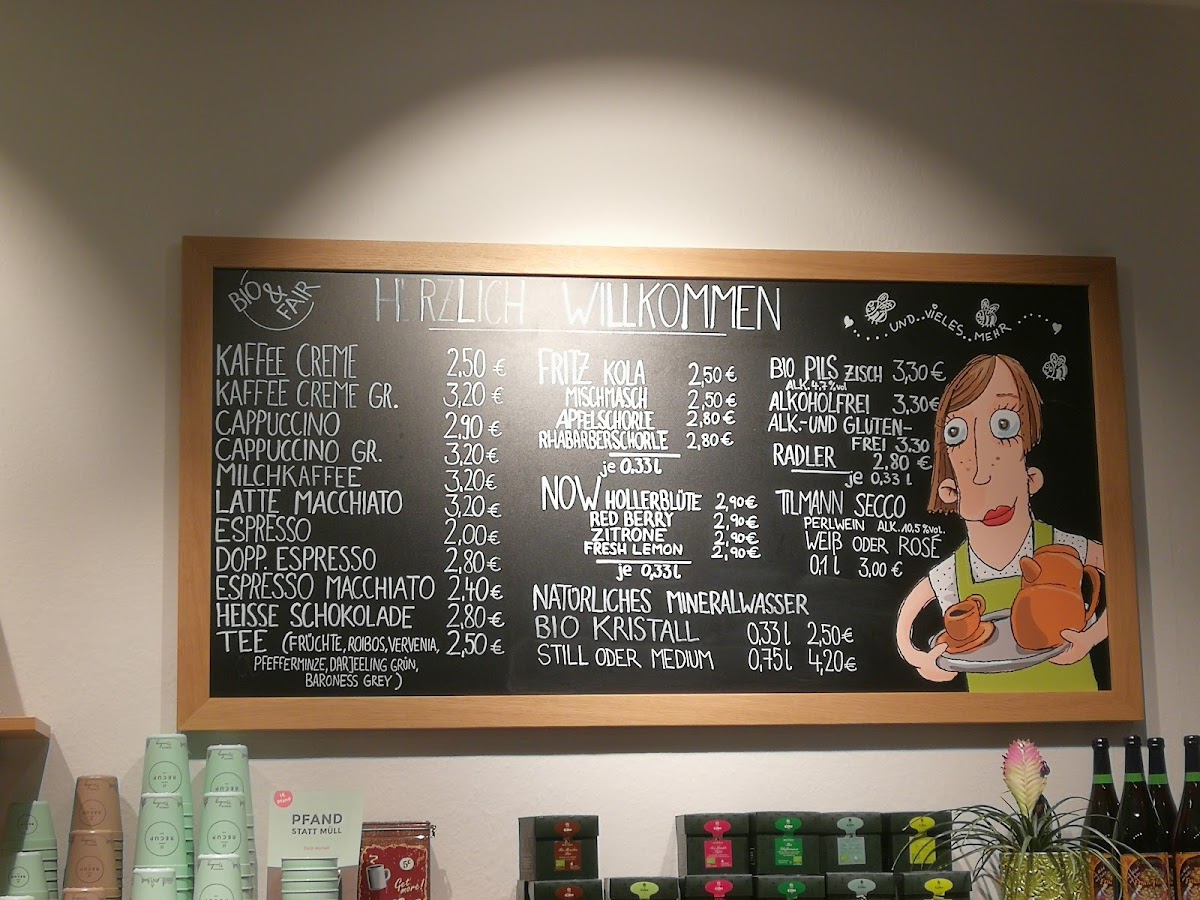 BIO & FAIR
HERZLICH WILLKOMMEN
...UND..VIELES..MEHR
KAFFEE CREME 2,50 €
KAFFEE CREME GR. 3,20 €
CAPPUCCINO 2,90 €
CAPPUCCINO GR. 3,20€
MILCHKAFFEE 3,20€
LATTE MACCHIATO 3,20€
ESPRESSO 2,00€
DOPP. ESPRESSO 2,80€
ESPRESSO MACCHIATO 2,40€
HEISSE SCHOKOLADE 2,80€
TEE (FRÜCHTE, ROIBOS, VERVENIA, 2,50€
PFEFFERMINZE, DARJEELING GRÜN,
BARONESS GREY)
FRITZ KOLA 2,50€
MISCHMASCH 2,50€
APFELSCHORLE 2,80€
RHABARBERSCHORLE 2,80€
je 0,33 l
NOW HOLLERBLÜTE 2,90€
RED BERRY 2,90€
ZITRONE 2,90€
FRESH LEMON 2,90€
je 0,33 l
NATÜRLICHES MINERALWASSER
BIO KRISTALL 0,33 l 2,50€
STILL ODER MEDIUM 0,75 l 4,20€
BIO PILS ZISCH 3,30€
ALK. 4,7% vol
ALKOHOLFREI 3,30€
ALK.-UND GLUTEN-
FREI 3,30
RADLER 2,80 €
je 0,33 l
TILMANN SECCO
PERLWEIN ALK. 10,5% vol.
WEIß ODER ROSÉ
0,1 l 3,00€
RECUP
RECUP
PFAND
STATT MÜLL
Get more!